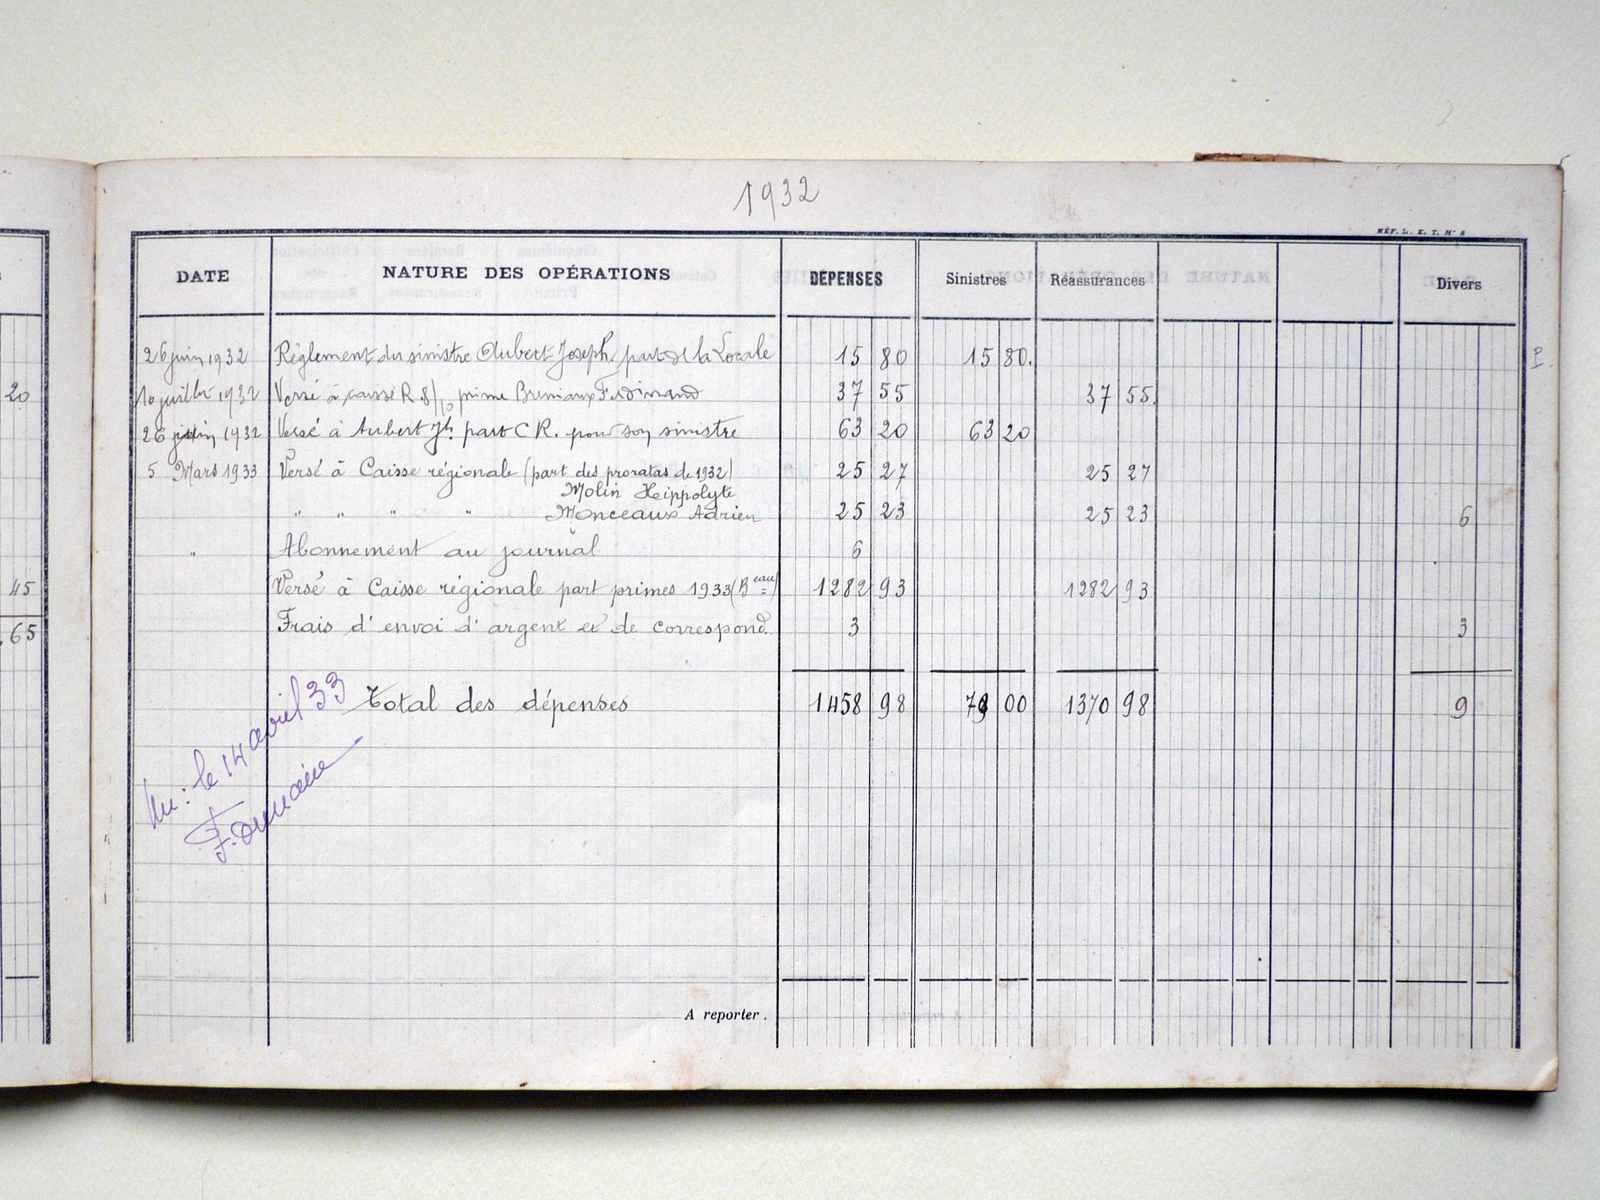 1932
RÉF. L. E. T. N° 8
DATE NATURE DES OPÉRATIONS DÉPENSES Sinistres Réassurances Divers
26 juin 1932 Règlement du sinistre Aubert Joseph, part de la Locale 15 80 15 80.
20 10 juillet 1932 Versé à caisse R prime Ferdinand 37 55 37 55.
26 juin 1932 Versé à Aubert Jh. part C R. pour son sinistre 63 20 63 20
5 Mars 1933 Versé à Caisse régionale (part des proratas de 1932) 25 27 25 27
Molin Heippolyte
" " " " Monceaux Adrien 25 23 25 23 6
" Abonnement au journal 6
45 Versé à Caisse régionale part primes 1933 (Beau) 1282 93 1282 93
65 Frais d'envoi d'argent et de correspond. 3 3
Total des dépenses 1458 98 79 00 1370 98 9
Vu: le 14 avril 33
F. Dumaine
A reporter.